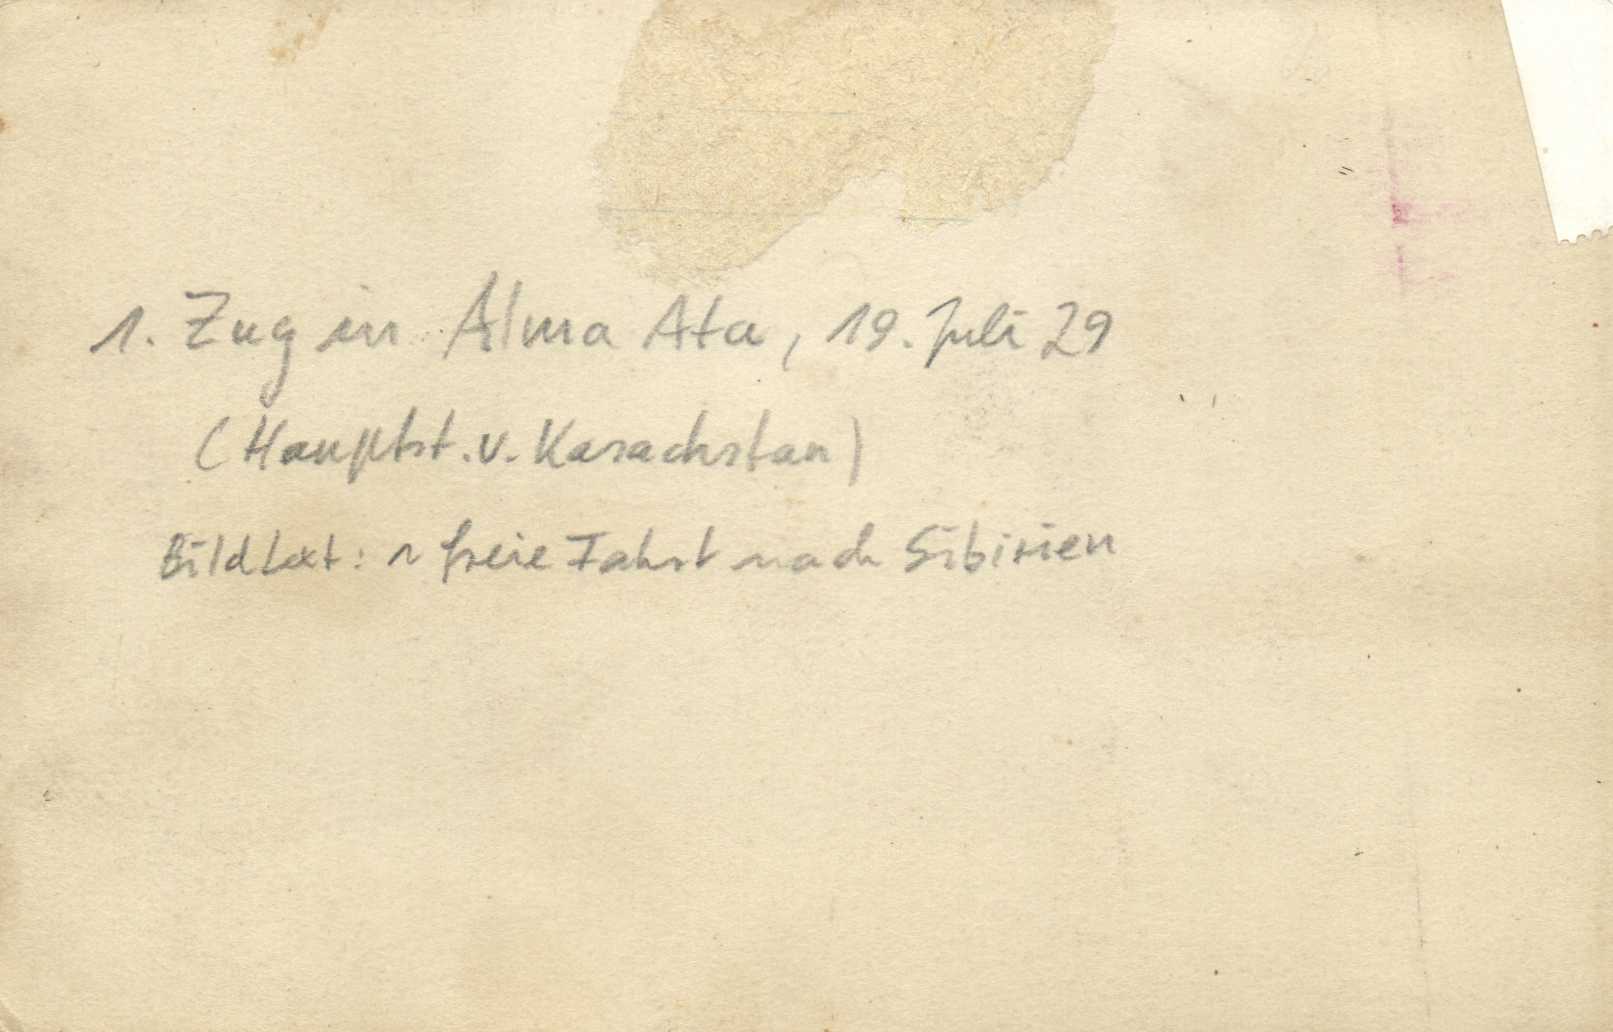 1. Zug in Alma Ata, 19. Juli 29
(Hauptst. v. Kasachstan)
Bildtext: ~ freie Fahrt nach Sibirien